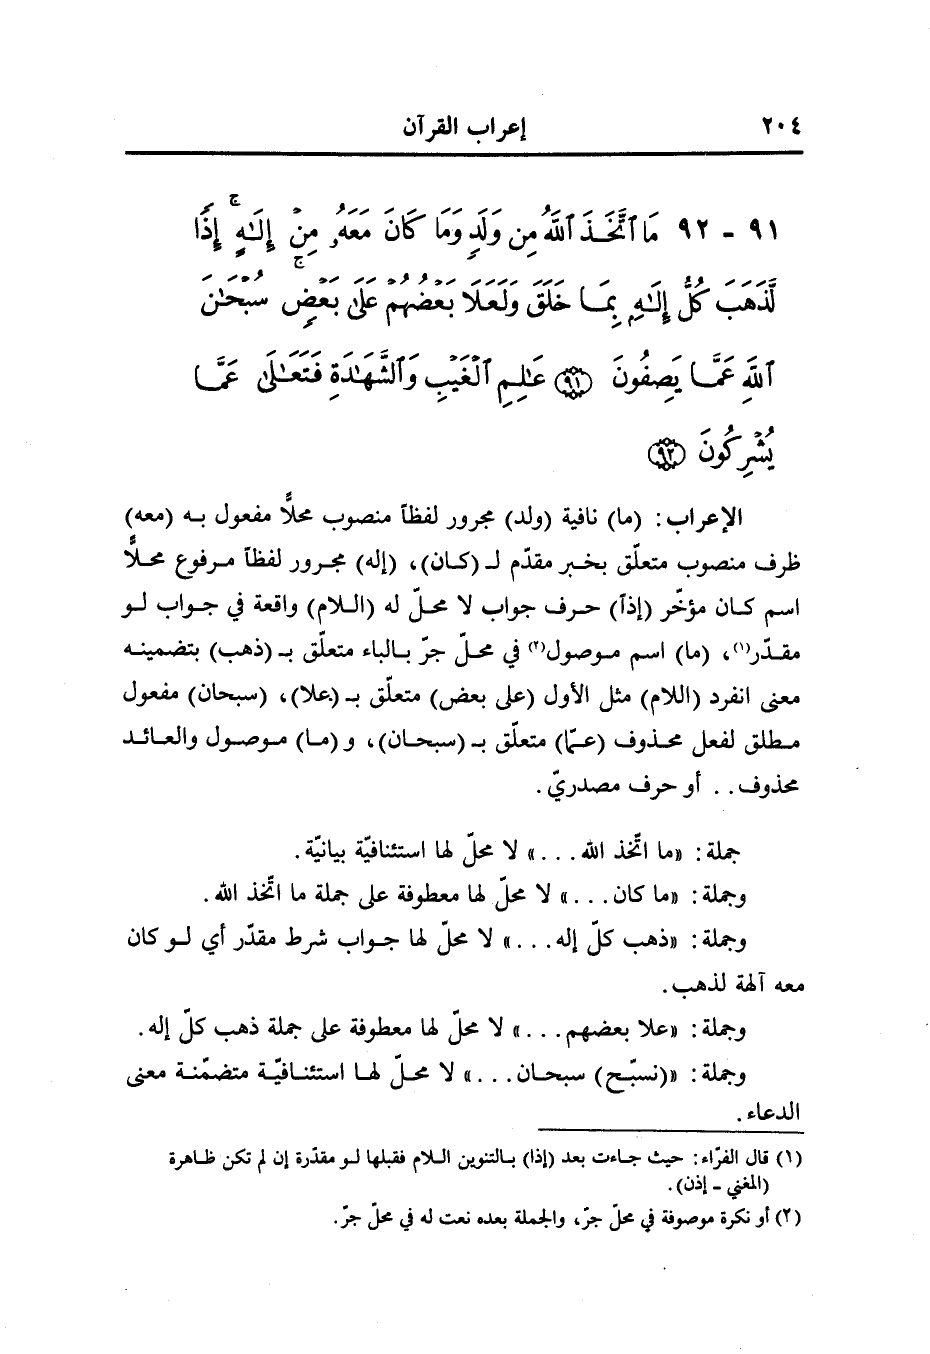 ٢٠٤
إعراب القرآن
٩١ - ٩٢ مَا ٱتَّخَذَ ٱللَّهُ مِن وَلَدٍ وَمَا كَانَ مَعَهُۥ مِنْ إِلَٰهٍ ۚ إِذًا
لَّذَهَبَ كُلُّ إِلَٰهٍۭ بِمَا خَلَقَ وَلَعَلَا بَعْضُهُمْ عَلَىٰ بَعْضٍ ۚ سُبْحَٰنَ
ٱللَّهِ عَمَّا يَصِفُونَ ۝٩١ عَٰلِمِ ٱلْغَيْبِ وَٱلشَّهَٰدَةِ فَتَعَٰلَىٰ عَمَّا
يُشْرِكُونَ ۝٩٢
الإعراب: (ما) نافية (ولد) مجرور لفظاً منصوب محلاًّ مفعول به (معه)
ظرف منصوب متعلّق بخبر مقدّم لـ (كان)، (إله) مجرور لفظاً مرفوع محلاًّ
اسم كان مؤخّر (إذاً) حرف جواب لا محلّ له (اللام) واقعة في جواب لو
مقدّر(١)، (ما) اسم موصول(٢) في محلّ جرّ بالباء متعلّق بـ (ذهب) بتضمينه
معنى انفرد (اللام) مثل الأول (على بعض) متعلّق بـ (علا)، (سبحان) مفعول
مطلق لفعل محذوف (عمّا) متعلّق بـ (سبحان)، و (ما) موصول والعائد
محذوف.. أو حرف مصدريّ.
جملة: «ما اتّخذ الله...» لا محلّ لها استئنافيّة بيانيّة.
وجملة: «ما كان...» لا محلّ لها معطوفة على جملة ما اتّخذ الله.
وجملة: «ذهب كلّ إله...» لا محلّ لها جواب شرط مقدّر أي لو كان
معه آلهة لذهب.
وجملة: «علا بعضهم...» لا محلّ لها معطوفة على جملة ذهب كلّ إله.
وجملة: «(نسبّح) سبحان...» لا محلّ لها استئنافيّة متضمّنة معنى
الدعاء.
(١) قال الفرّاء: حيث جاءت بعد (إذا) بالتنوين اللام فقبلها لو مقدّرة إن لم تكن ظاهرة
(المغني - إذن).
(٢) أو نكرة موصوفة في محلّ جرّ، والجملة بعده نعت له في محلّ جرّ.